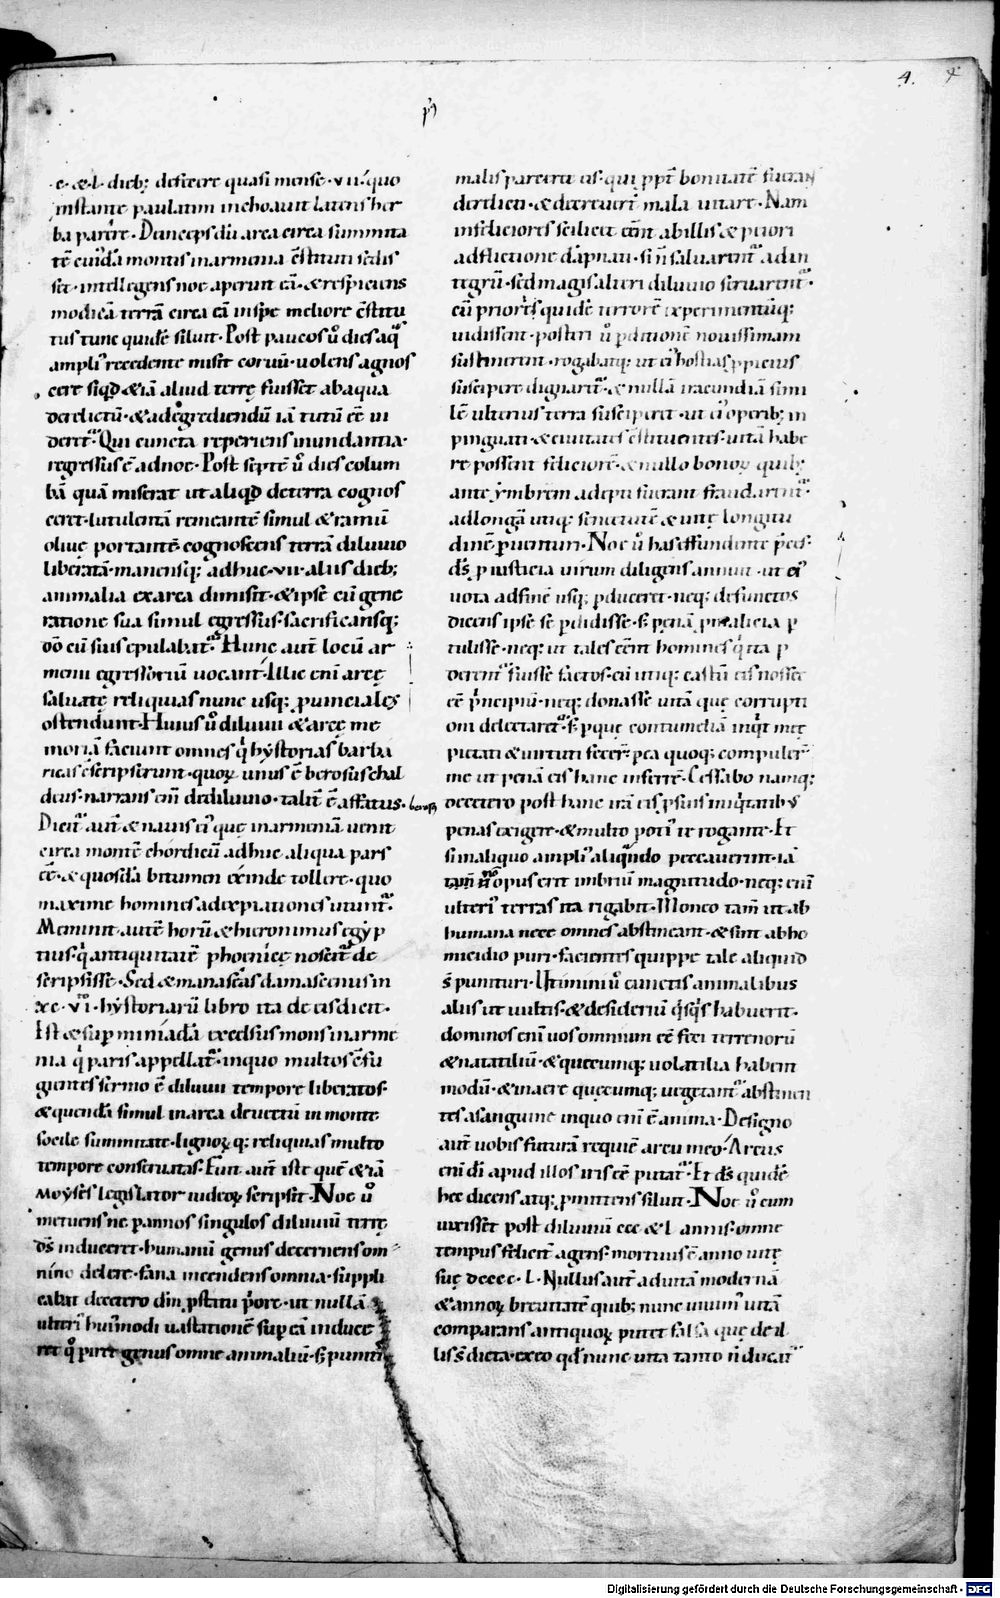 4.
·c·&·l· dieb; desicere quasi mense·vii·quo
instante paulatim inchoavit latens her
ba parere·Deinceps dū arca circa summita
tē cuiꝰdā montis in armenia cōstituti sedis
set·intellegens noe aperuit eā·& respiciens
modicā terrā circa eā inspe meliore cōstitu
tus tunc quidē siluit·Post paucos ū dies aq
ampliꝰ recedente misit corvū·volens agnos
cere siqd & iā aliud terrę fuisset ab aqua
derelictū·& ad egrediendū iā tutū eē vi
deret·Qui cuncta reperiens inundantia·
regressus ē ad noe·Post septē ū dies colum
bā quā miserat ut aliqd de terra cognos
ceret·lutulentā remeantē simul & ramū
olivę portantē cognoscens terrā diluvio
liberatā·manensq; adhuc·vii·aliis dieb;
animalia ex arca dimisit·& ipse cū gene
ratione sua simul egressus·sacrificansq;
dō cū suis epulabat·Hunc aut locū ar
menii egressoriū vocant·Illic eni arcę
salvatę reliquias nunc usq; pvinciales
ostendunt·Huius ū diluvii & arcę me
moriā faciunt omnes q hystorias barba
ricas cōscripserunt·quoꝝ unus ē berosus chal
deus·narrans eni de diluvio·talit ē affatus·
Dicit aut & navis ei quę in armeniā venit
circa montē chordicū adhuc aliqua pars
eē·& quosdā bitumen exinde tollere·quo
maxime homines ad expiationes utunt·
Meminit autē horū & hieronimus egyp
tius·q antiquitatē phoenicę noscit de
scripsisse·Sed & manaseas damascenus in
xc·vi·hystoriarū libro ita de eis dicit·
Est & sup miniadā excelsus mons in arme
nia q paris appellat·in quo multos cōfu
gientes sermo ē diluvii tempore liberatos·
& quendā simul in arca devectū in monte
socile summitate·lignoꝝ q; reliquias multo
tempore conservatas·Fuit aut iste quē & iā
moyses legislator iudeoꝝ scripsit·Noe ū
metuens ne p annos singulos diluviū terrę
ds induceret·humanū genus decernens om
nino delere·fana incendens omnia·suppli
cabat decetero din pstatu pore·ut nullā
ulteriꝰ huiꝰmodi vastationē sup eā induce
ret q piret genus omne animaliū·s; punitis
malis parceret iis·qui ppt bonitatē fuerant
derelicti·& decreverit mala vitare·Nam
infeliciores scilicet eēnt ab illis & priori
adflictione dāpnati·si ñ salvarent ad in
tegrū·sed magis alteri diluvio servarent·
cū prioris quidē terrorē experimentūq;
vidissent·posteri ū pditionē novissimam
sustinerent·rogabatq; ut ei hostias ppicius
suscipere dignaret·& nullā iracundiā simi
lē ulterius terra susciperet·ut ei operib; in
pinguati·& civitates cōstituentes·vitā habe
re possent feliciorē·& nullo bonoꝝ quib;
ante ymbrem adepti fuerant fraudarent·
ad longā utiq; senectutē & vitę longitu
dinē pventuri·Noe ū has effundente pces·
ds p iusticia virum diligens annuit·ut ei
vota ad finē usq; pduceret·neq; defunctos
dicens ipse se pdidisse·s; penā p malicia p
tulisse·neq; ut tales eēnt homines q ita p
derent fuisse factos·cū utiq; castū eis nosse
eē pncipiū·neq; donasse vitā quę corrupti
oni delectaret·s; p quę contumeliā inqt meę
pietati & virtuti fecer·p ea quoq; compuler
me ut penā eis hanc inferrē·Cessabo namq;
decetero post hanc irā eis p suis iniqtatibꝰ
penas exigere·& multo potiꝰ te rogante·Et
si in aliquo ampliꝰ aliqndo peccaverint·iā
tam non opus erit imbriū magnitudo·neq; eni
ulteriꝰ terras ita rigabit·Moneo tam ut ab
humana nece omnes abstineant·& sint ab ho
micidio puri·facientes quippe tale aliquid
s punituri·Utimini ū cunctis animalibus
aliis ut vultis·& desideriū qsqs habuerit·
dominos eni vos omnium eē feci terrenorū
& natatiliū·& quecumq; volatilia habent
modū·& in aere quecumq; vegetant abstinen
tes a sanguine in quo eni ē anima·Designo
aut vobis futurā requiē arcu meo·Arcus
eni di apud illos iris eē putat·Et ds quidē
hec dicens atq; pmittens siluit·Noe ū cum
vixisset post diluviū ccc & l annis·omne
tempus felicit agens·mortuus ē anno vitę
suę dcccc·l·Nullus aut ad vitā modernā
& annoꝝ brevitatē quib; nunc vivimꝰ vitā
comparans antiquoꝝ putet falsa quę de il
lis s dicta·ex eo qd nunc vita tanto ñ ducat
Digitalisierung gefördert durch die Deutsche Forschungsgemeinschaft - DFG